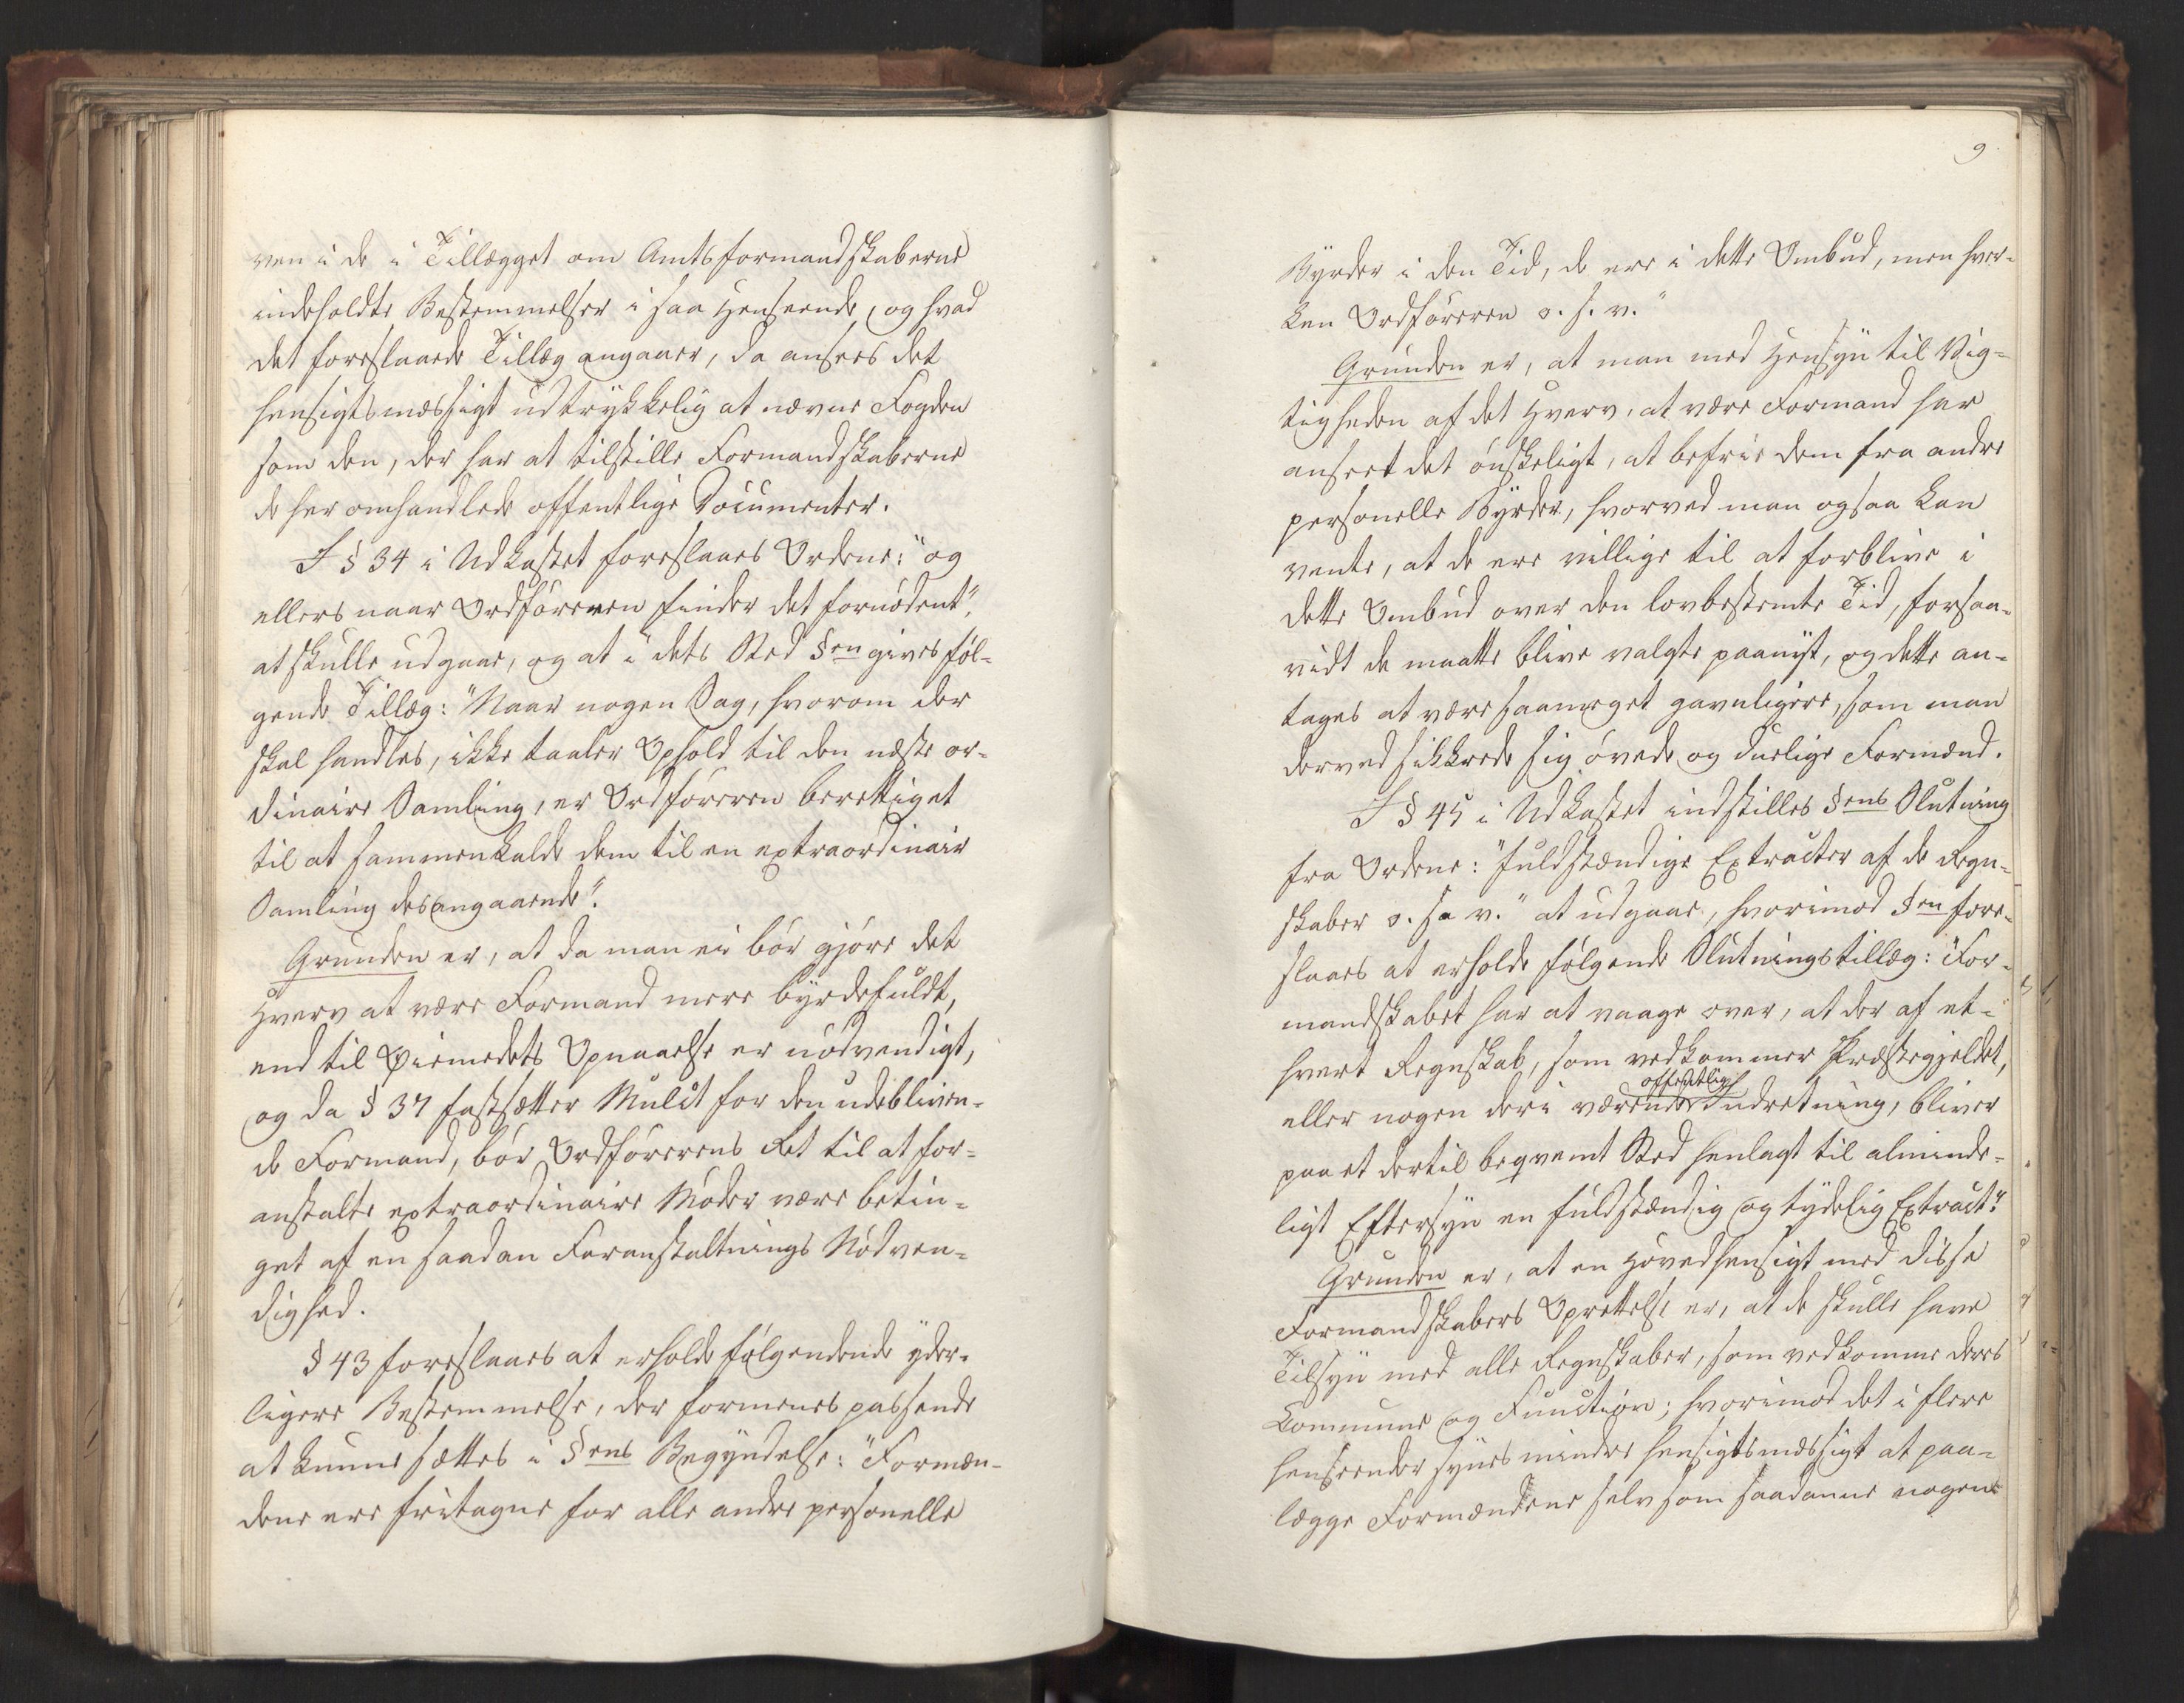 ven i de i Tillægget om Amtsformandskaberne
indeholdte Bestemmelser i saa Henseende, og hvad
det foreslaaede Tillæg angaaer, da ansees det
hensigtsmæssigt udtrykkelig at nævne Fogden
som den, der har at tilstille Formandskaberne
de her omhandlede offentlige Documenter.
I § 34 i Udkastet foreslaaes Ordene: "og
ellers naar Ordføreren finder det fornödent",
at skulle udgaae, og at i dets Sted §en gives føl-
gende Tillæg: "Naar nogen Sag, hvorom der
skal handles, ikke taaler Ophold til den næste or-
dinaire Samling, er Ordføreren berettiget
til at sammenkalde dem til en extraordinair
Samling desangaaende".
Grunden er, at da man ei bör gjöre det
Hverv at være Formand mere byrdefuldt,
end til Øiemedets Opnaaelse er nödvendigt,
og da § 37 fastsætter Mulct for den udebliven-
de Formand, bör Ordförerens Ret til at for-
anstalte extraordinaire Möder være betin-
get af en saadan Foranstaltnings Nödven-
dighed.
§ 43 foreslaaes at erholde følgendende yder-
ligere Bestemmelse, der formenes passende
at kunne sættes i §ens Begyndelse: "Formæn-
dene ere fritagne for alle andre personelle
9
Byrder i den Tid, de ere i dette Ombud, men hver-
ken Ordföreren o. s. v."
Grunden er, at man med Hensyn til Vig-
tigheden af det Hverv, at være Formand har
anseet det önskeligt, at befrie dem fra andre
personelle Byrder, hvorved man ogsaa kan
vente, at de ere villige til at forblive i
dette Ombud over den lovbestemte Tid, forsaa-
vidt de maatte blive valgte paanyt, og dette an-
tages at være saameget gavnligere, som man
derved sikkrede sig övede og duelige Formænd.
I § 45 i Udkastet indstilles §ens Slutning
fra Ordene: "fuldstændige Extracter af de Regn-
skaber o. s. v." at udgaae, hvorimod §en fore-
slaaes at erholde følgende Slutningstillæg: "For-
mandskabet har at vaage over, at der af et-
hvert Regnskab, som vedkommer Præstegjeldet,
offentlig
eller nogen deri værende Indretning, bliver
paa et dertil beqvemt Sted henlagt til alminde-
ligt Eftersyn en fuldstændig og tydelig Extract".
Grunden er, at en Hovedhensigt med disse
Formandskabers Oprettelse er, at de skulle have
Tilsyn med alle Regnskaber, som vedkomme deres
Commune og Function; hvorimod det i flere
Henseender synes mindre hensigtsmæssigt at paa-
lægge Formændene selv som saadanne nogen